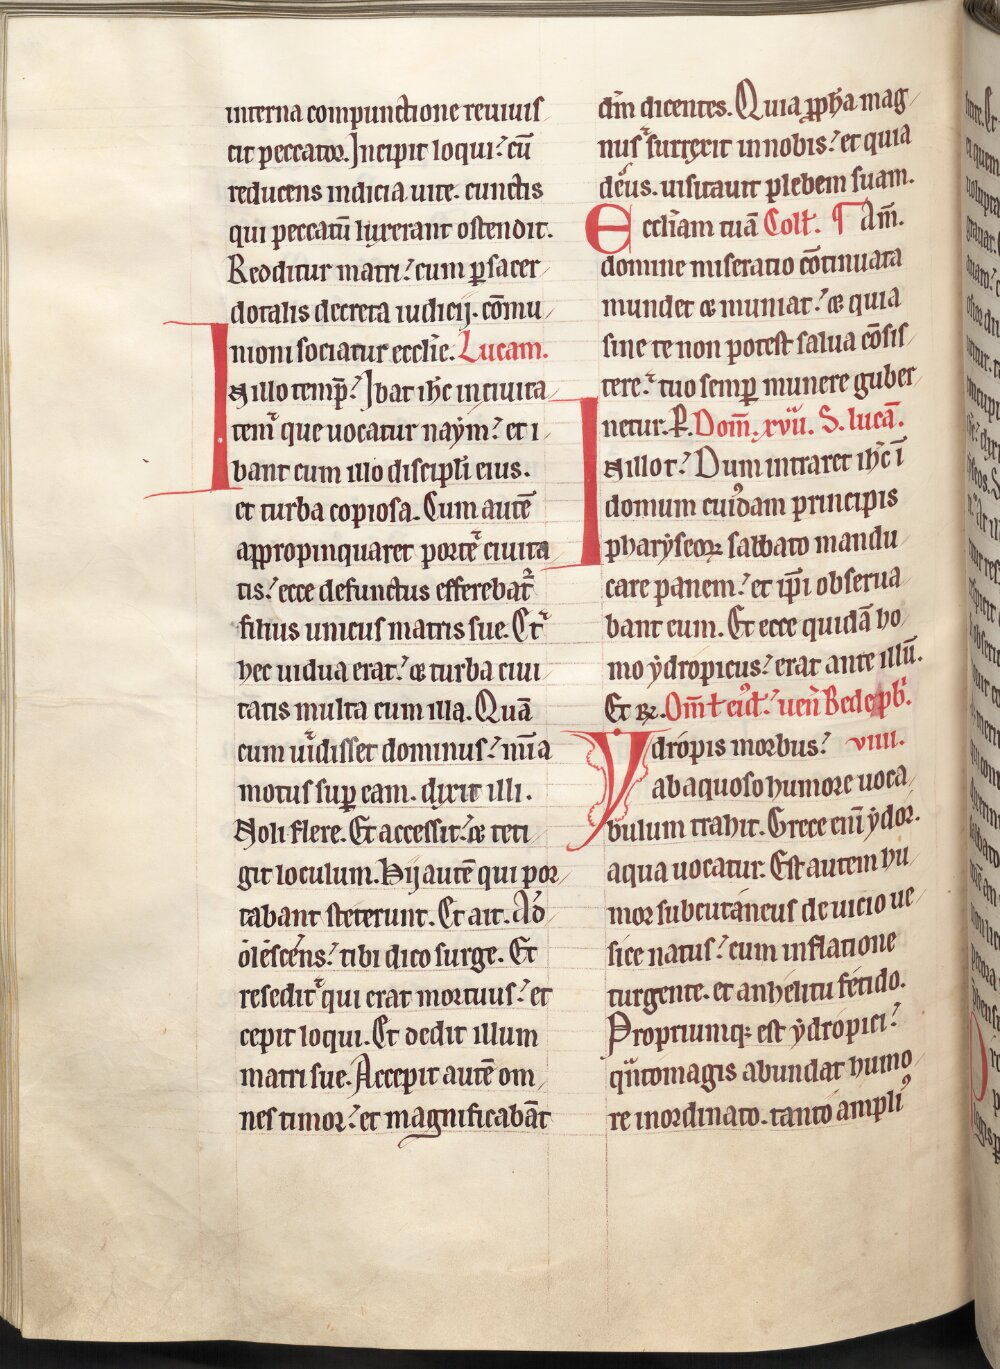 interna compunctione reuiuis
cit peccator. Incipit loqui: cū
reducens indicia uite. cunctis
qui peccatū luxerant ostendit.
Redditur matri: cum ꝑ sacer
dotalis decreta iudicij. cōmu
nioni sociatur eccl̄ie. Lucam.
In illo temp̄: Ibat ih̄c in ciuita
tem que uocatur naym: et i
bant cum illo discipl̄i eius.
et turba copiosa. Cum autē
appropinquaret porte ciuita
tis: ecce defunctus efferebat᷑
filius unicus matris sue. Et
hec uidua erat: et turba ciui
tatis multa cum illa. Quā
cum uidisset dominus: mīa
motus suꝑ eam. dixit illi.
Noli flere. Et accessit: et teti
git loculum. Hij autē qui por
tabant steterunt. Et ait. Ad
olescens: tibi dico surge. Et
resedit qui erat mortuus: et
cepit loqui. Et dedit illum
matri sue. Accepit autē om
nes timor: et magnificabāt
dm̄ dicentes. Quia ꝓph̄a mag
nus surrexit in nobis: et quia
deus. uisitauit plebem suam.
Eccl̄iam tuā Coll̄. ¶ Am̄.
domine miseratio cōtinuata
mundet et muniat: et quia
sine te non potest salua cōsis
tere: tuo semꝑ munere guber
netur. P. Dom̄. xvii. S. lucā.
In illo t: Dum intraret ih̄c ī
domum cuiusdam principis
pharyseoꝝ sabbato mandu
care panem: et ip̄i obserua
bant eum. Et ecce quidā ho
mo ydropicus: erat ante illū.
Et rꝝ. Om̄l eiusd: uen̄ Bede pb̄ri.
Ydropis morbus: viiii.
ab aquoso humore uoca
bulum trahit. Grece enī ydor.
aqua uocatur. Est autem hu
mor subcutaneus de uicio ue
sice natus: cum inflatione
turgente. et anhelitu fetido.
Propriumqꝫ est ydropici:
qn̄to magis abundat humo
re inordinato. tanto ampliꝰ